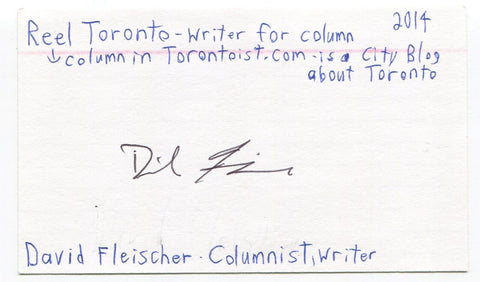 Reel Toronto-Writer for column 2014
↳column in Torontoist.com-is a City Blog
about Toronto
David Fleischer. Columnist, Writer